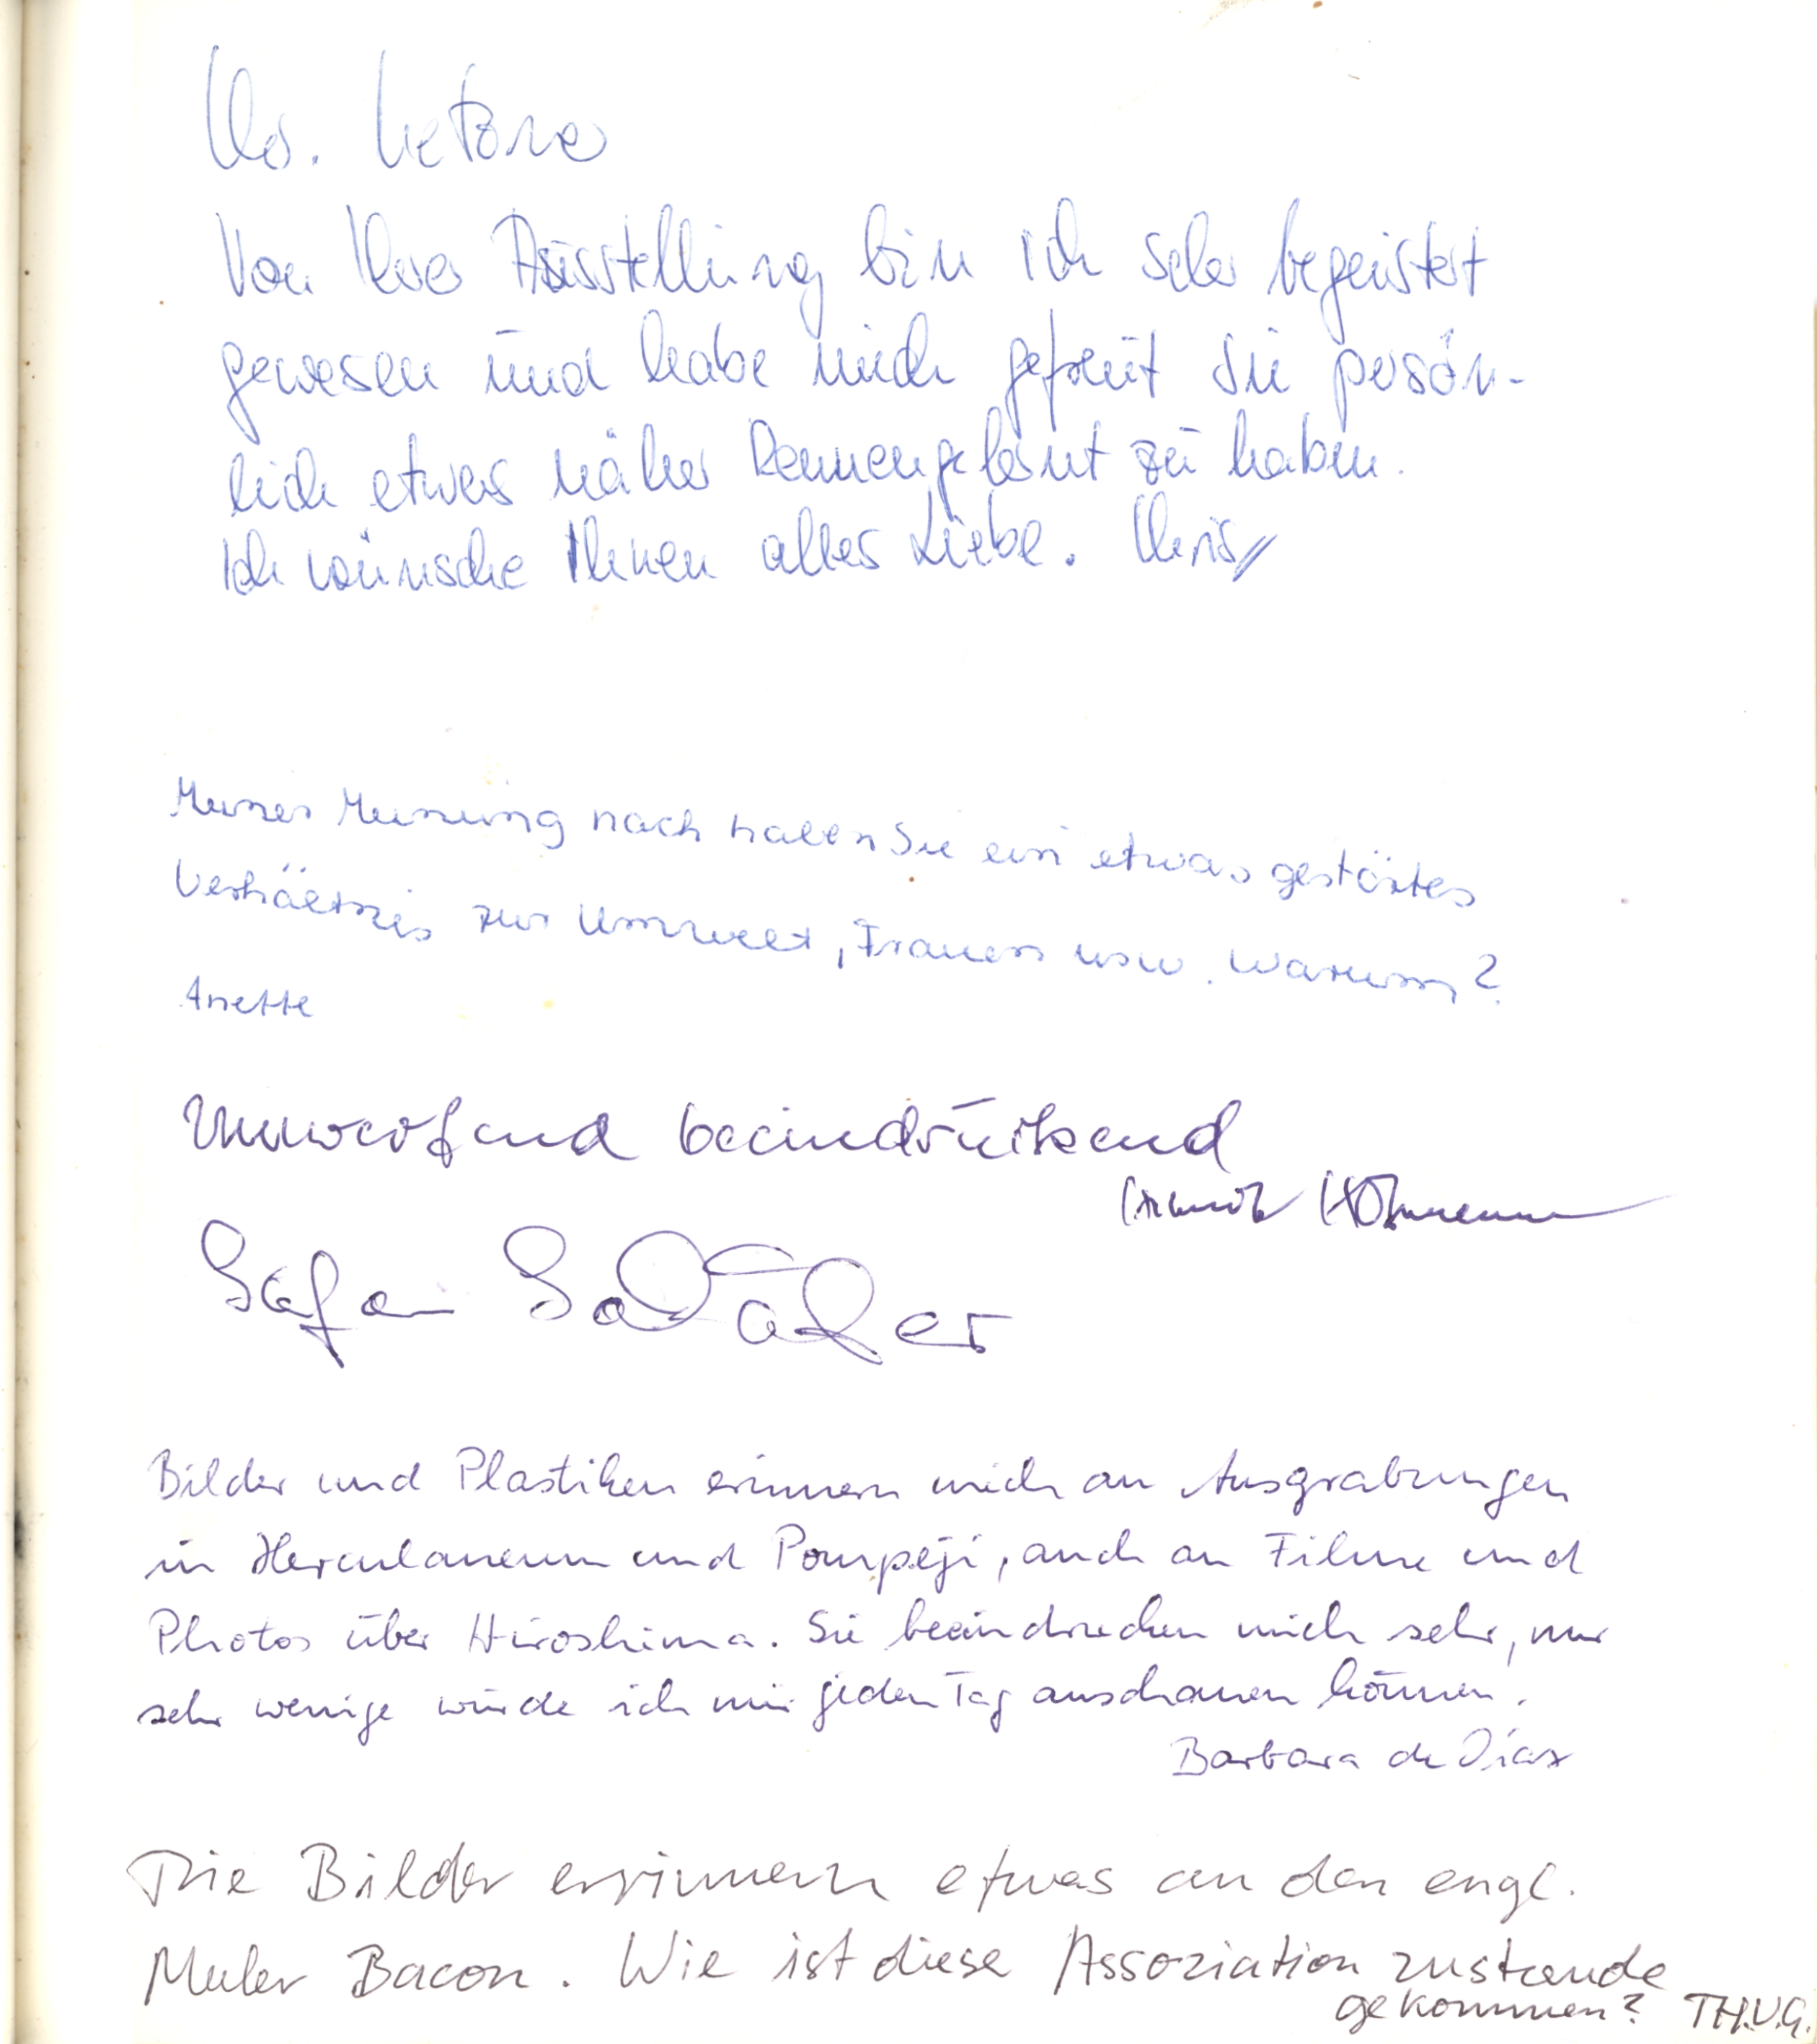 Von Ihrer Ausstellung bin ich sehr begeistert
gewesen und habe mich gefreut Sie persön-
lich etwas näher kennengelernt zu haben.
Ich wünsche Ihnen alles Liebe. Chris
Meiner Meinung nach haben Sie ein etwas gestörtes
Verhältnis zur Umwelt, Frauen usw. Warum?
Anette
Umwerfend beeindruckend
Bilder und Plastiken erinnern mich an Ausgrabungen
in Herculaneum und Pompeji, auch an Filme und
Photos über Hiroshima. Sie beeindrucken mich sehr, nur
sehr wenige würde ich mir jeden Tag anschauen können.
Barbara de Diaz
Die Bilder erinnern etwas an den engl.
Maler Bacon. Wie ist diese Assoziation zustande
gekommen? TH.V.G.